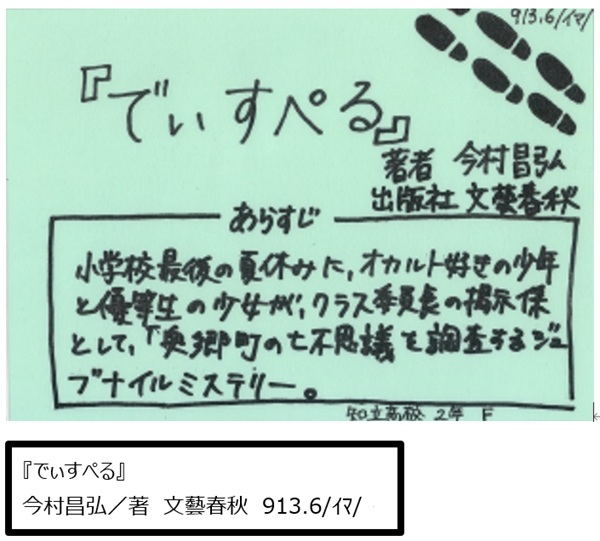 913.6/ｲﾏ/
『でぃすぺる』
著者 今村昌弘
出版社 文藝春秋
あらすじ
小学校最後の夏休みに、オカルト好きの少年
と優等生の少女が、クラス委員長の掲示係
として、「奥郷町の七不思議を調査するジュ
ブナイルミステリー。
知立高校 2年 F
『でぃすぺる』
今村昌弘／著 文藝春秋 913.6/ｲﾏ/